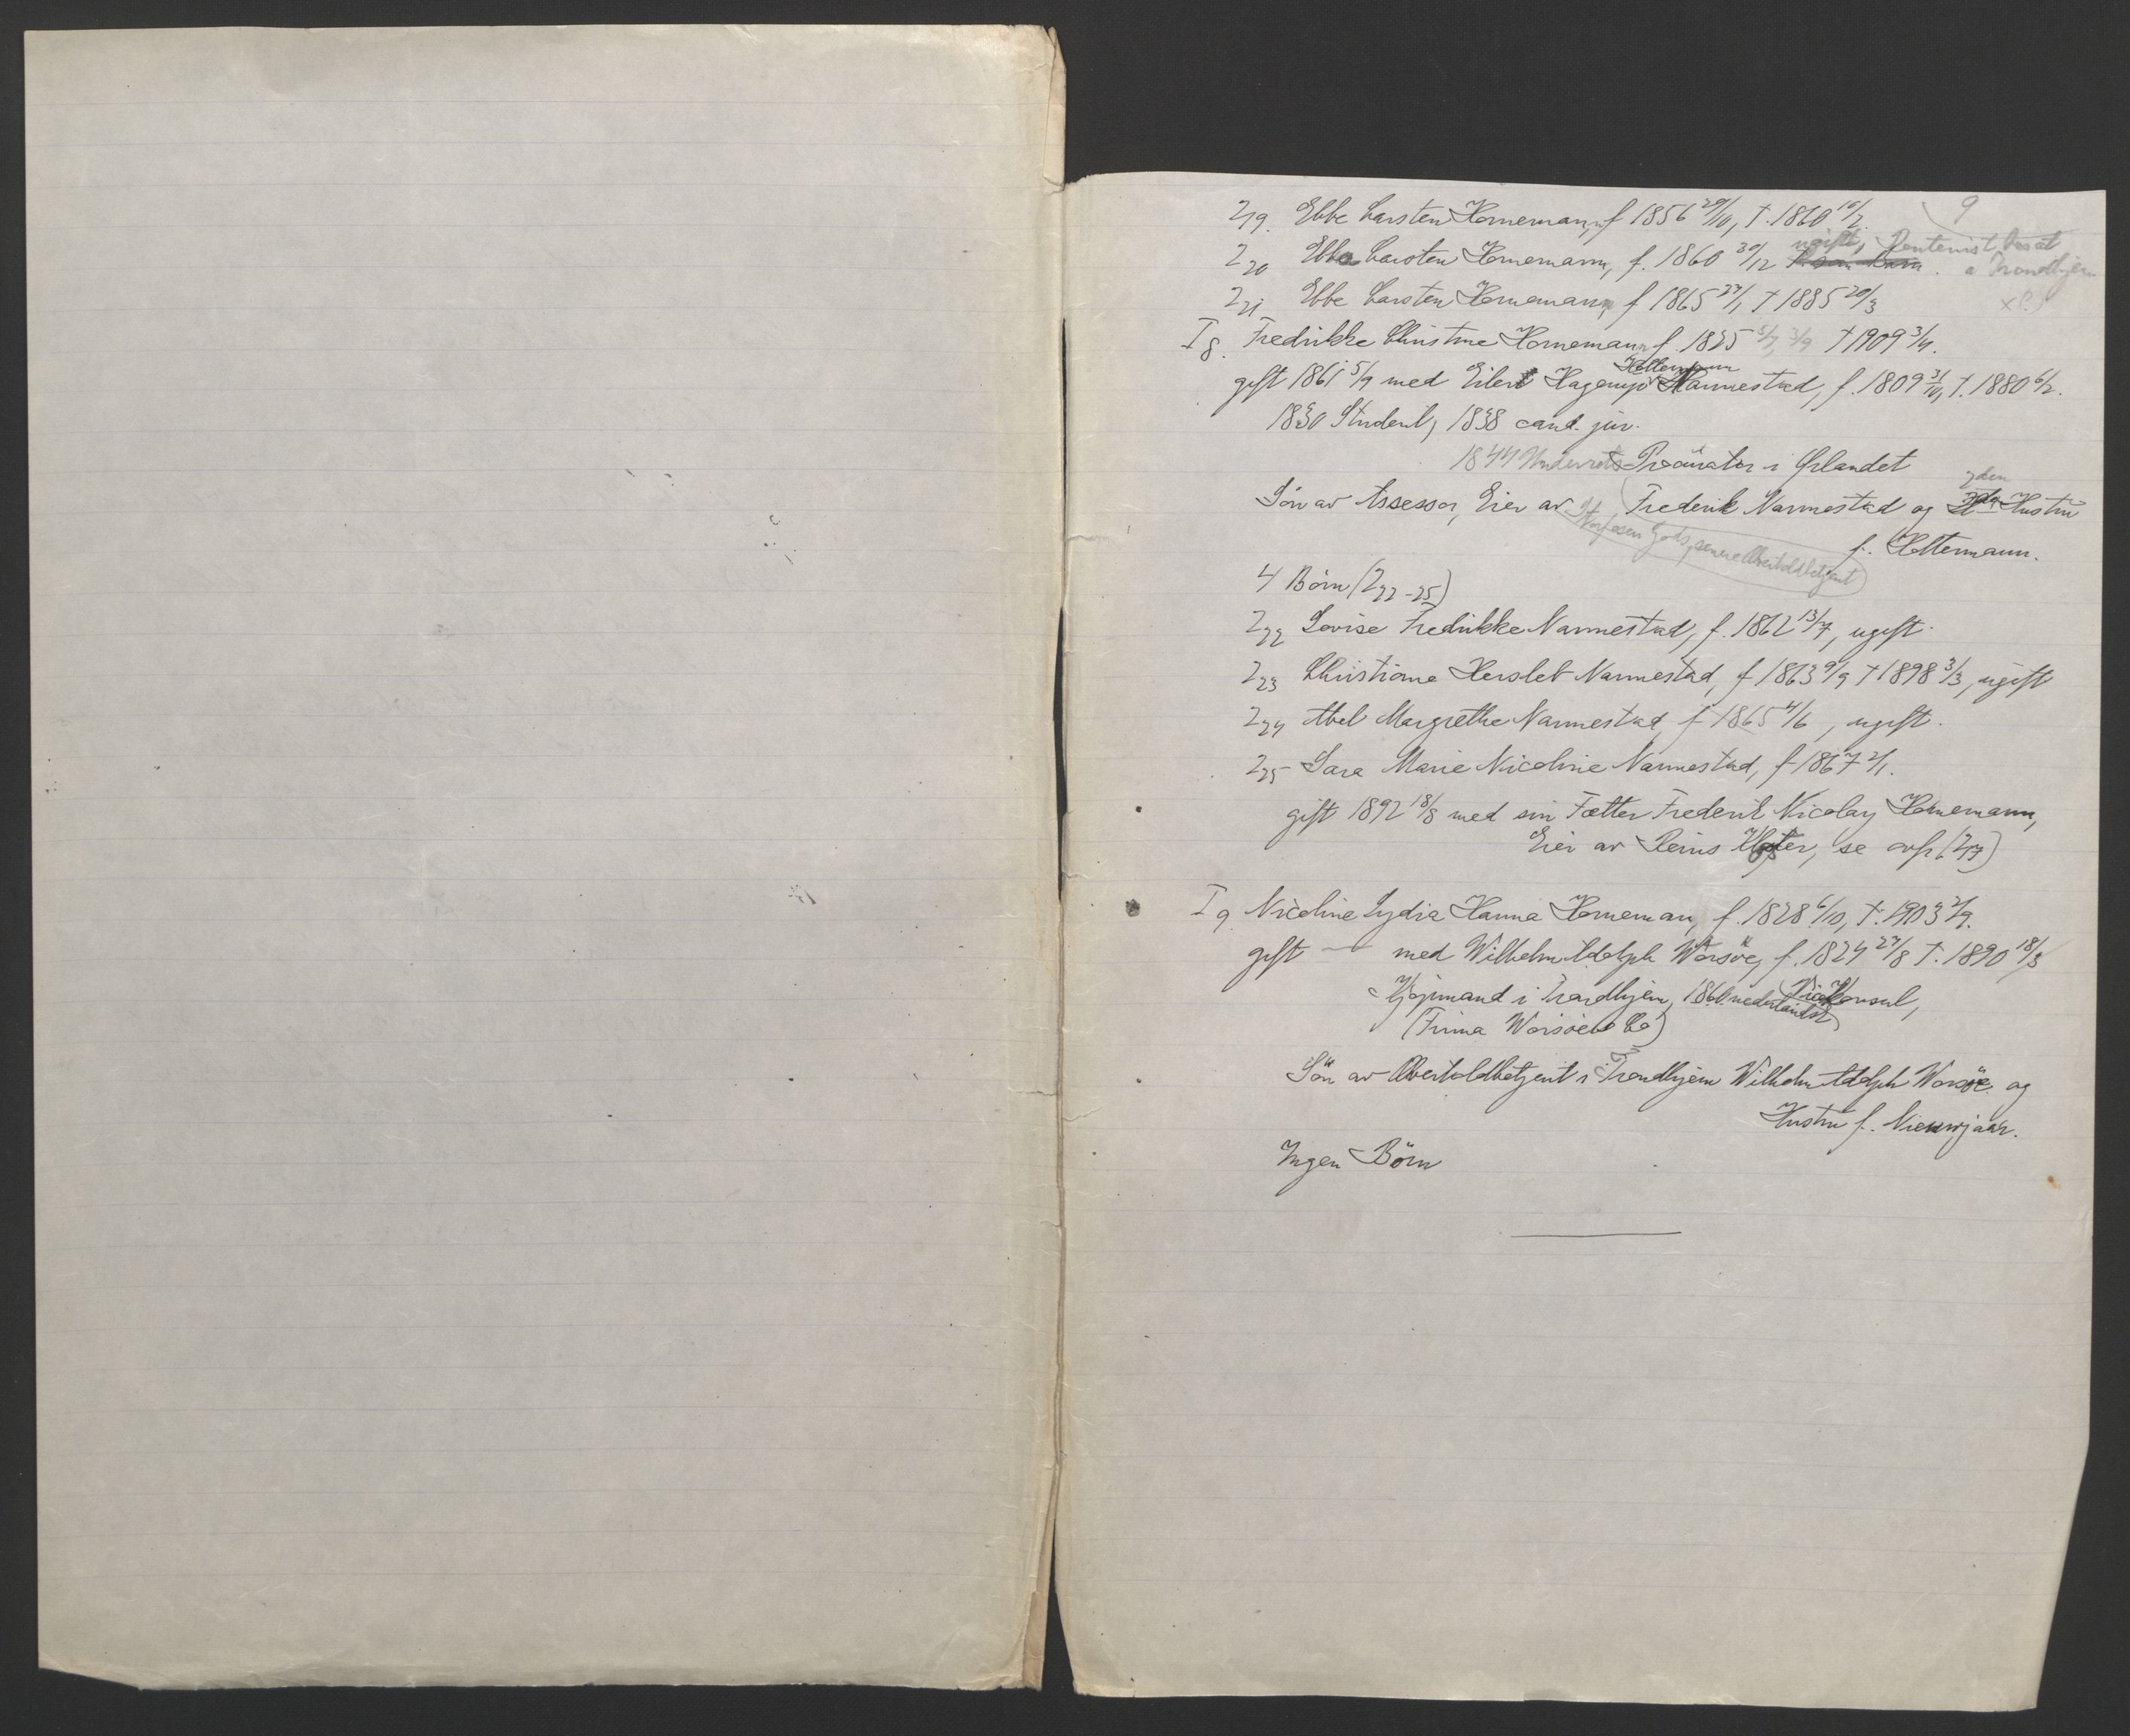 9
2 19. Ebbe Carsten Hornemann, f 1856 29/10, † 1860 10/2.
2 20 Ebbe Carsten Hornemann, f. 1860 30/12 ugift, Rentenist, bosat
i Trondhjem
2 21 Ebbe Carsten Hornemann, f 1865 27/1 † 1885 20/3
I 8. Fredrikke Christine Hornemann f. 1825 5/7, 3/9 † 1909 3/4.
Heltermann
gift 1861 5/9 med Eilert Hagerup Nannestad, f. 1809 31/10, †. 1880 6/2.
1830 Student, 1838 cand. jur.
1844 Underrets Procurator i Ørlandet
Sön av Assessor, Eier av Frederik Nannestad og 2den Hustru
Gods, senere Overtoldbetjent
f. Heltermann.
4 Börn (2 22-25)
2 22 Lovise Fredrikke Nannestad, f. 1862 13/7, ugift.
2 23 Christiane Herslet Nannestad, f 1863 9/9 † 1898 3/3, ugift
2 24 Abel Margrethe Nannestad, f 1865 4/6, ugift.
2 25 Sara Marie Nicoline Nannestad, f 1867 2/1.
gift 1892 18/8 med sin Fætter Frederik Nicolay Hornemann,
Eier av Reins Kloster, se (2 17)
I 9 Nicoline Lydia Hanna Horneman, f. 1828 6/10, †. 1903 2/9.
gift — med Wilhelm Adolph Worsöe, f. 1824 27/8 †. 1890 18/3
Kjöpmand i Trondhjem, 1860 nederlandsk Vicekonsul,
(Firma Worsöe & Co)
Sön av Overtoldbetjent i Trondhjem Wilhelm Adolph Worsöe og
Hustru f. Nieuwjaar.
Ingen Börn